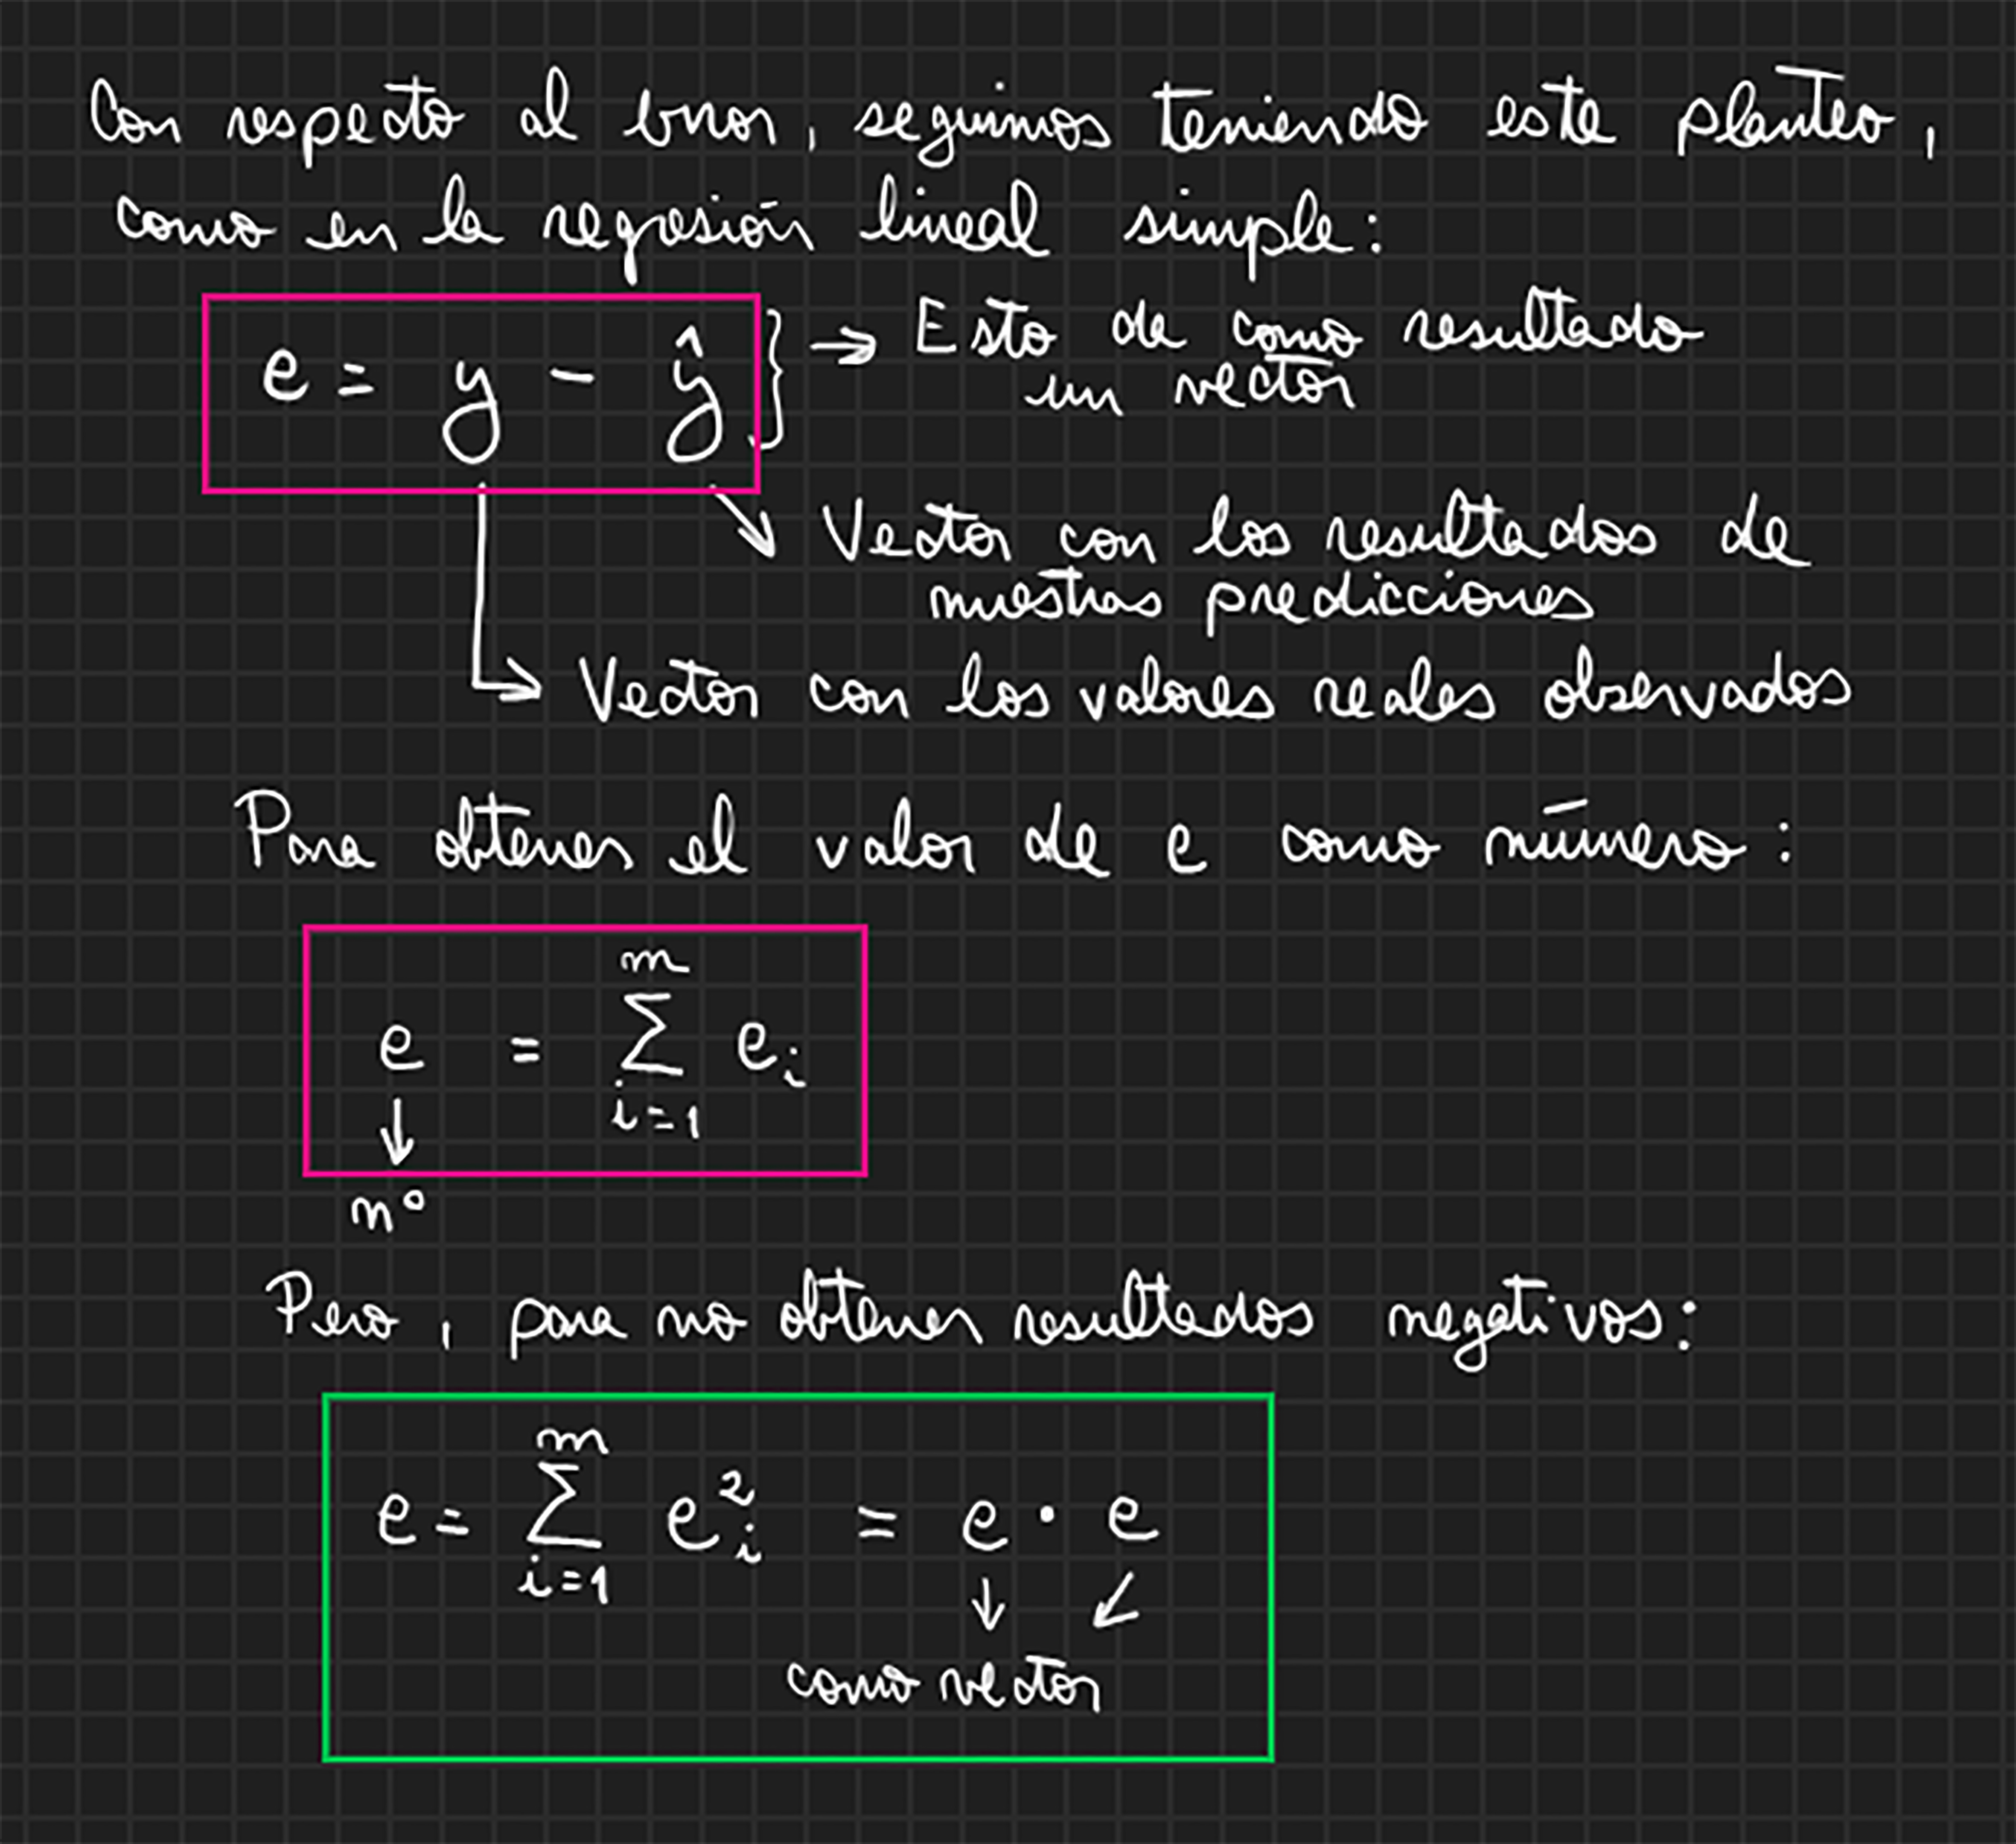 Con respecto al error, seguimos teniendo este planteo,
como en la regresión lineal simple:
e = y - ŷ } → Esto de como resultado
un vector
Vector con los resultados de
nuestras predicciones
Vector con los valores reales observados
Para obtener el valor de e como número:
m
e = ∑ e_i
i=1
↓
nº
Pero, para no obtener resultados negativos:
m
e = ∑ e_i² = e · e
i=1
↓ ↙
como vector